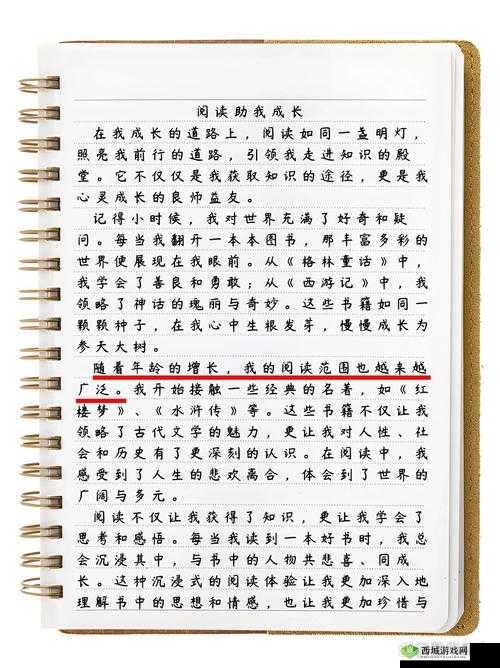 阅读助我成长
在我成长的道路上，阅读如同一盏明灯，
照亮我前行的道路，引领我走进知识的殿
堂。它不仅仅是我获取知识的途径，更是我
心灵成长的良师益友。
记得小时候，我对世界充满了好奇和疑
问。每当我翻开一本本图书，那丰富多彩的
世界便展现在我眼前。从《格林童话》中，
我学会了善良和勇敢；从《西游记》中，我
领略了神话的瑰丽与奇妙。这些书籍如同一
颗颗种子，在我心中生根发芽，慢慢成长为
参天大树。
随着年龄的增长，我的阅读范围也越来越
广泛。我开始接触一些经典的名著，如《红
楼梦》、《水浒传》等。这些书籍不仅让我
领略了古代文学的魅力，更让我对人性、社
会和历史有了更深刻的认识。在阅读中，我
感受到了人生的悲欢离合，体会到了世界的
广阔与多元。
阅读不仅让我获得了知识，更让我学会了
思考和感悟。每当我读到一本好书时，我总
会沉浸其中，与书中的人物共悲喜、同成
长。这种沉浸式的阅读体验让我更加深入地
理解书中的思想和情感，也让我更加珍惜与
西城游戏网